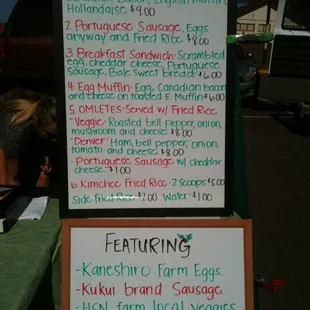 Hollandaise $9.00
2 Portuguese Sausage, Eggs
anyway and Fried Rice $8.00
3 Breakfast Sandwich: Scrambled
egg, cheddar cheese, Portuguese
Sausage, Bale sweet bread $6.00
4 Egg Muffin: Egg, Canadian bacon
and cheese on toasted E. Muffin $6.00
5 OMLETES: Served w/ Fried Rice
-Veggie: Roasted bell pepper, onion,
mushroom and cheese $8.00
-Denver: Ham, bell pepper, onion,
tomato and cheese $8.00
-Portuguese Sausage w/ cheddar
cheese $1.00
6 Kimchee Fried Rice - 2 Scoops $5.00
Side Fried Rice $2.00 Water - $1.00
FEATURING
-Kaneshiro Farm Eggs.
-Kukui brand Sausage.
farm local veggies